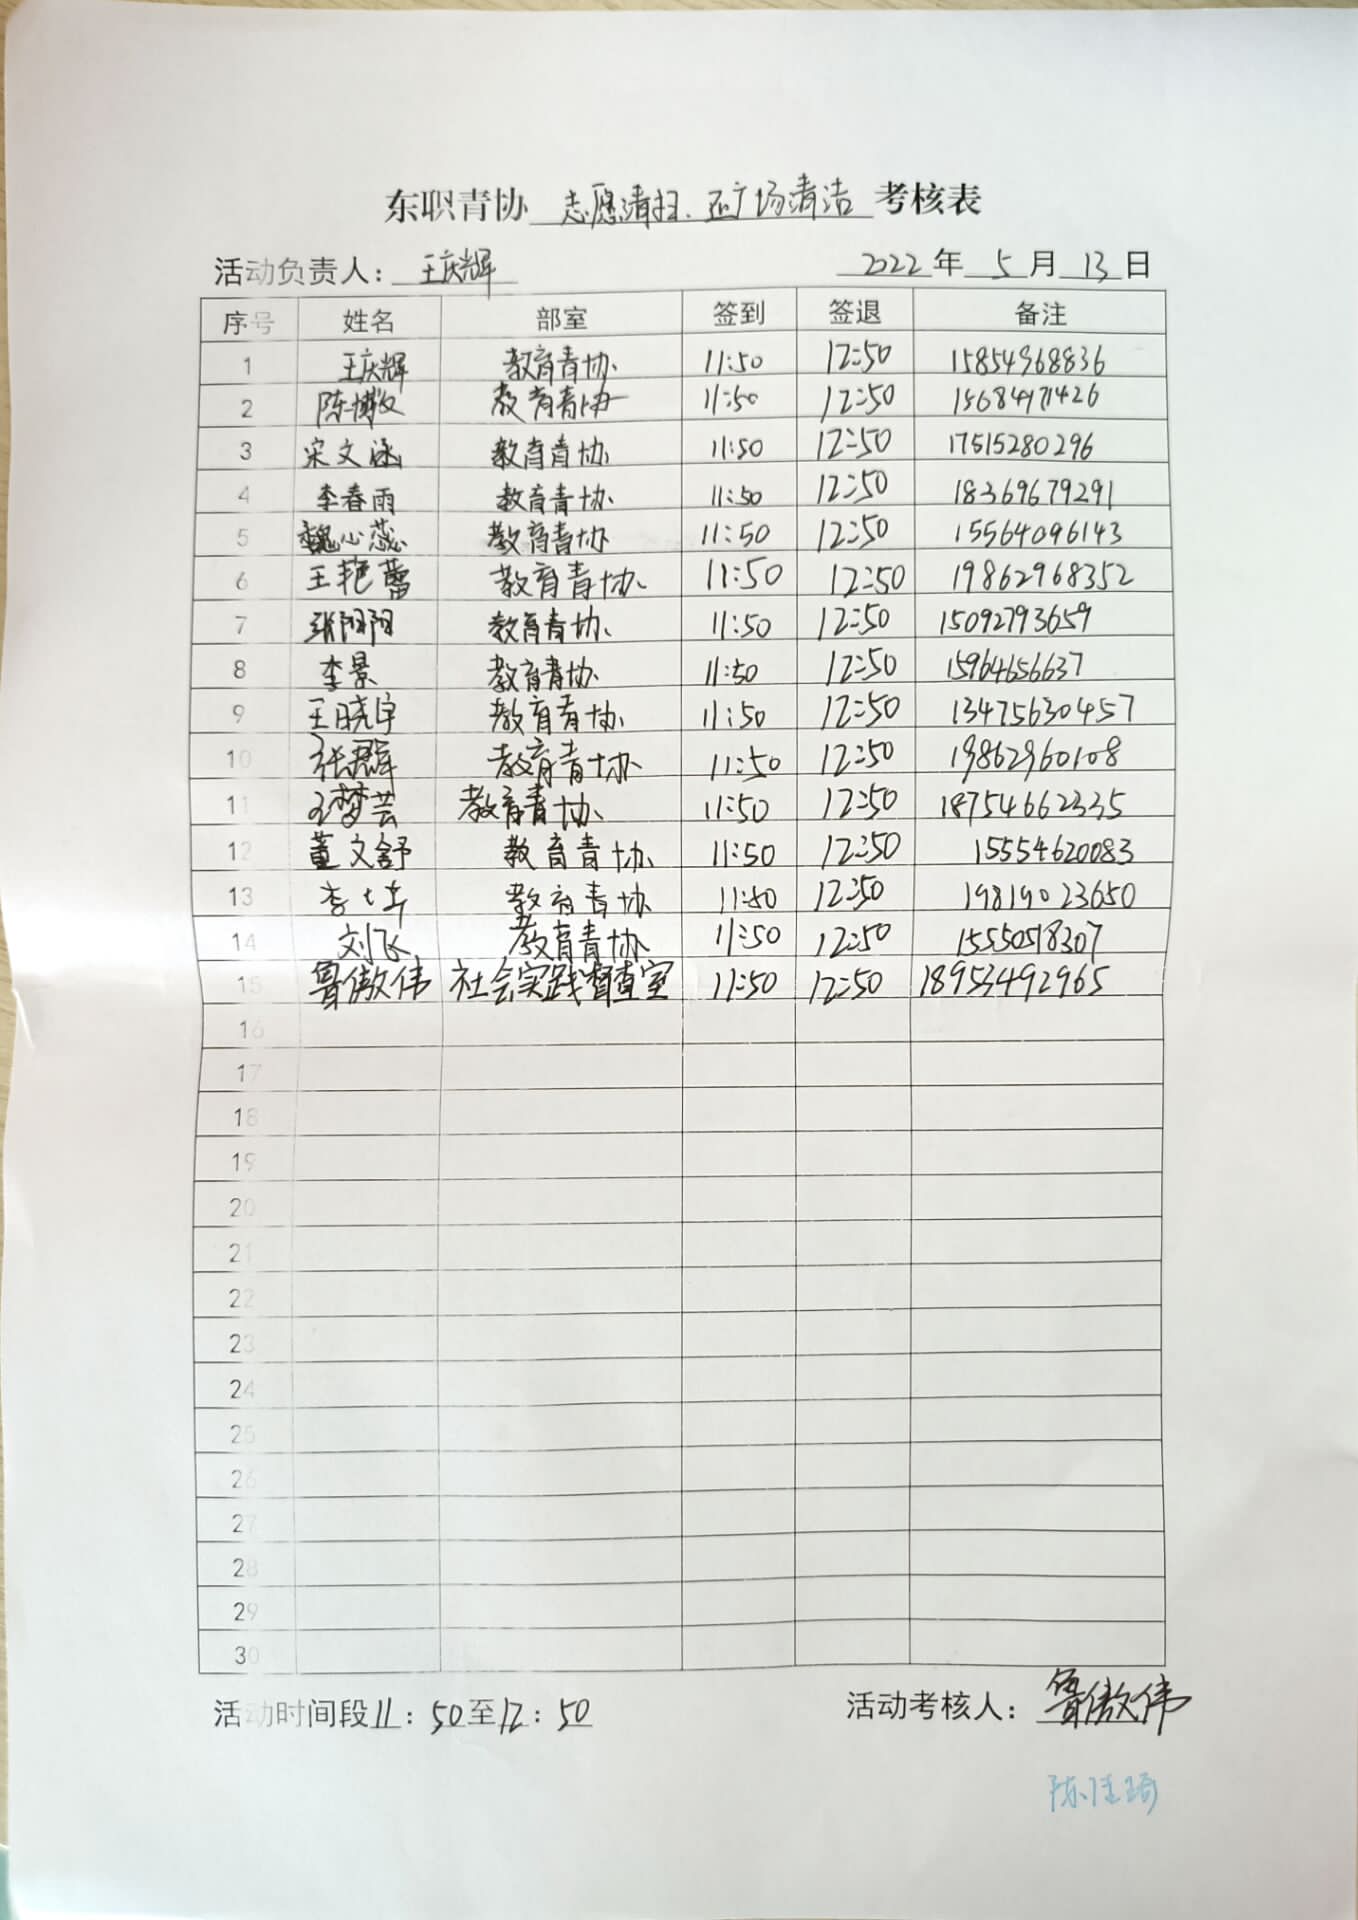 东职青协 志愿清扫、广场清洁 考核表
活动负责人：王庆辉 2022年 5月 13日
序号 姓名 部室 签到 签退 备注
1 王庆辉 教育青协 11:50 12:50 15854968836
2 陈博文 教育青协 11:50 12:50 15684171426
3 宋文涵 教育青协 11:50 12:50 17515280296
4 李春雨 教育青协 11:50 12:50 18369679291
5 魏心蕊 教育青协 11:50 12:50 15564096143
6 王艳蕾 教育青协 11:50 12:50 19862968352
7 张阳阳 教育青协 11:50 12:50 15092793659
8 李景 教育青协 11:50 12:50 15964656637
9 王晓宇 教育青协 11:50 12:50 13475630457
10 张 辉 教育青协 11:50 12:50 19862960108
11 王梦芸 教育青协 11:50 12:50 18754662335
12 董文舒 教育青协 11:50 12:50 15554620083
13 李 教育青协 11:50 12:50 19819023650
14 刘飞 教育青协 11:50 12:50 15550518307
15 鲁傲伟 社会实践督查室 11:50 12:50 18953492965
16
17
18
19
20
21
22
23
24
25
26
27
28
29
30
活动时间段11：50至12：50 活动考核人：鲁傲伟
陈佳琦